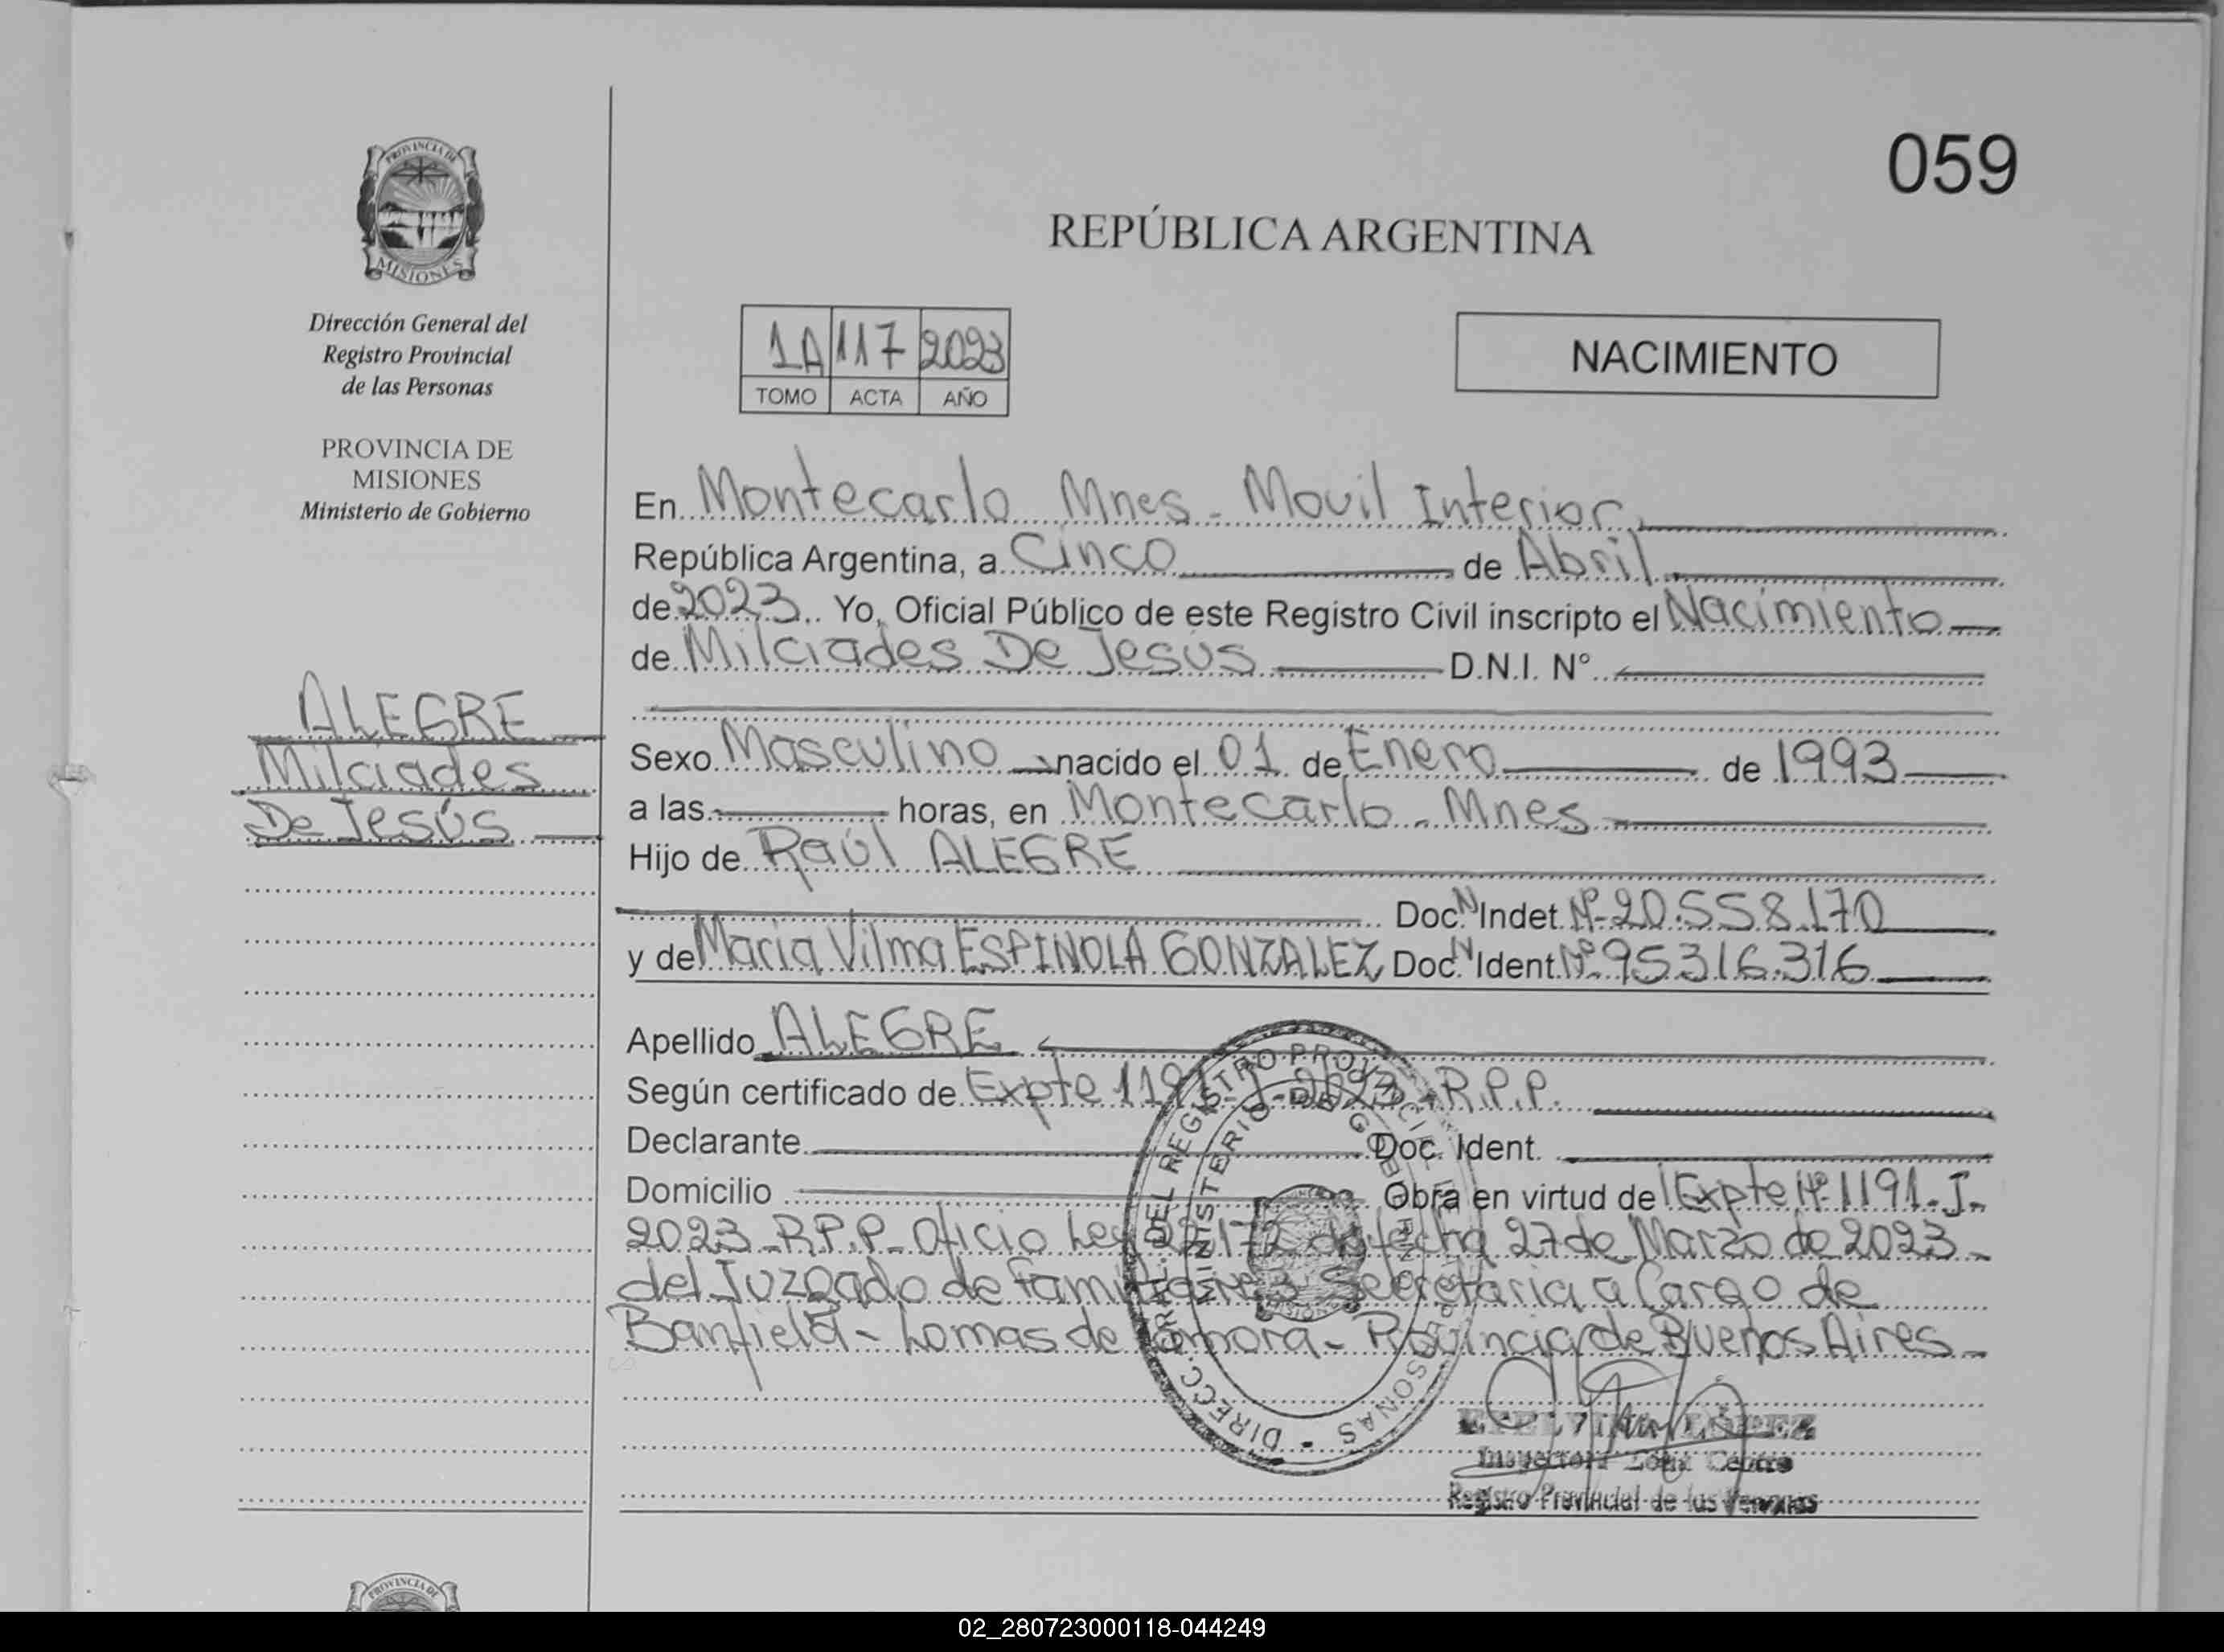 059
PROVINCIA DE
MISIONES
Dirección General del
Registro Provincial
de las Personas
PROVINCIA DE
MISIONES
Ministerio de Gobierno
ALEGRE
Milciades
De Jesús
REPÚBLICA ARGENTINA
1A 117 2023
TOMO ACTA AÑO
NACIMIENTO
En Montecarlo Mnes - Movil Interior
República Argentina, a Cinco de Abril
de 2023. Yo, Oficial Público de este Registro Civil inscripto el Nacimiento
de Milciades De Jesús D.N.I. N°
Sexo Masculino nacido el 01 de Enero de 1993
a las horas, en Montecarlo - Mnes
Hijo de Raúl ALEGRE
Doc. N Indet. Nº 20.558.170
y de Maria Vilma ESPINOLA GONZALEZ Doc. N Ident. Nº 95316.316
Apellido ALEGRE
Según certificado de Expte 1191-J-2023-R.P.P.
Declarante Doc. Ident.
Domicilio Obra en virtud de Expte Nº 1191-J-
2023-R.P.P- Oficio Ley 22.172 de fecha 27 de Marzo de 2023-
del Juzgado de familia Nº 3 Secretaria a Cargo de
Banfield - Lomas de Zamora - Provincia de Buenos Aires-
DIRECC. GRAL. DEL REGISTRO PROVINCIAL DE LAS PERSONAS
MINISTERIO DE GOBIERNO
MISIONES
Inspectora Zona Centro
Registro Provincial de las Personas
PROVINCIA DE
02_280723000118-044249